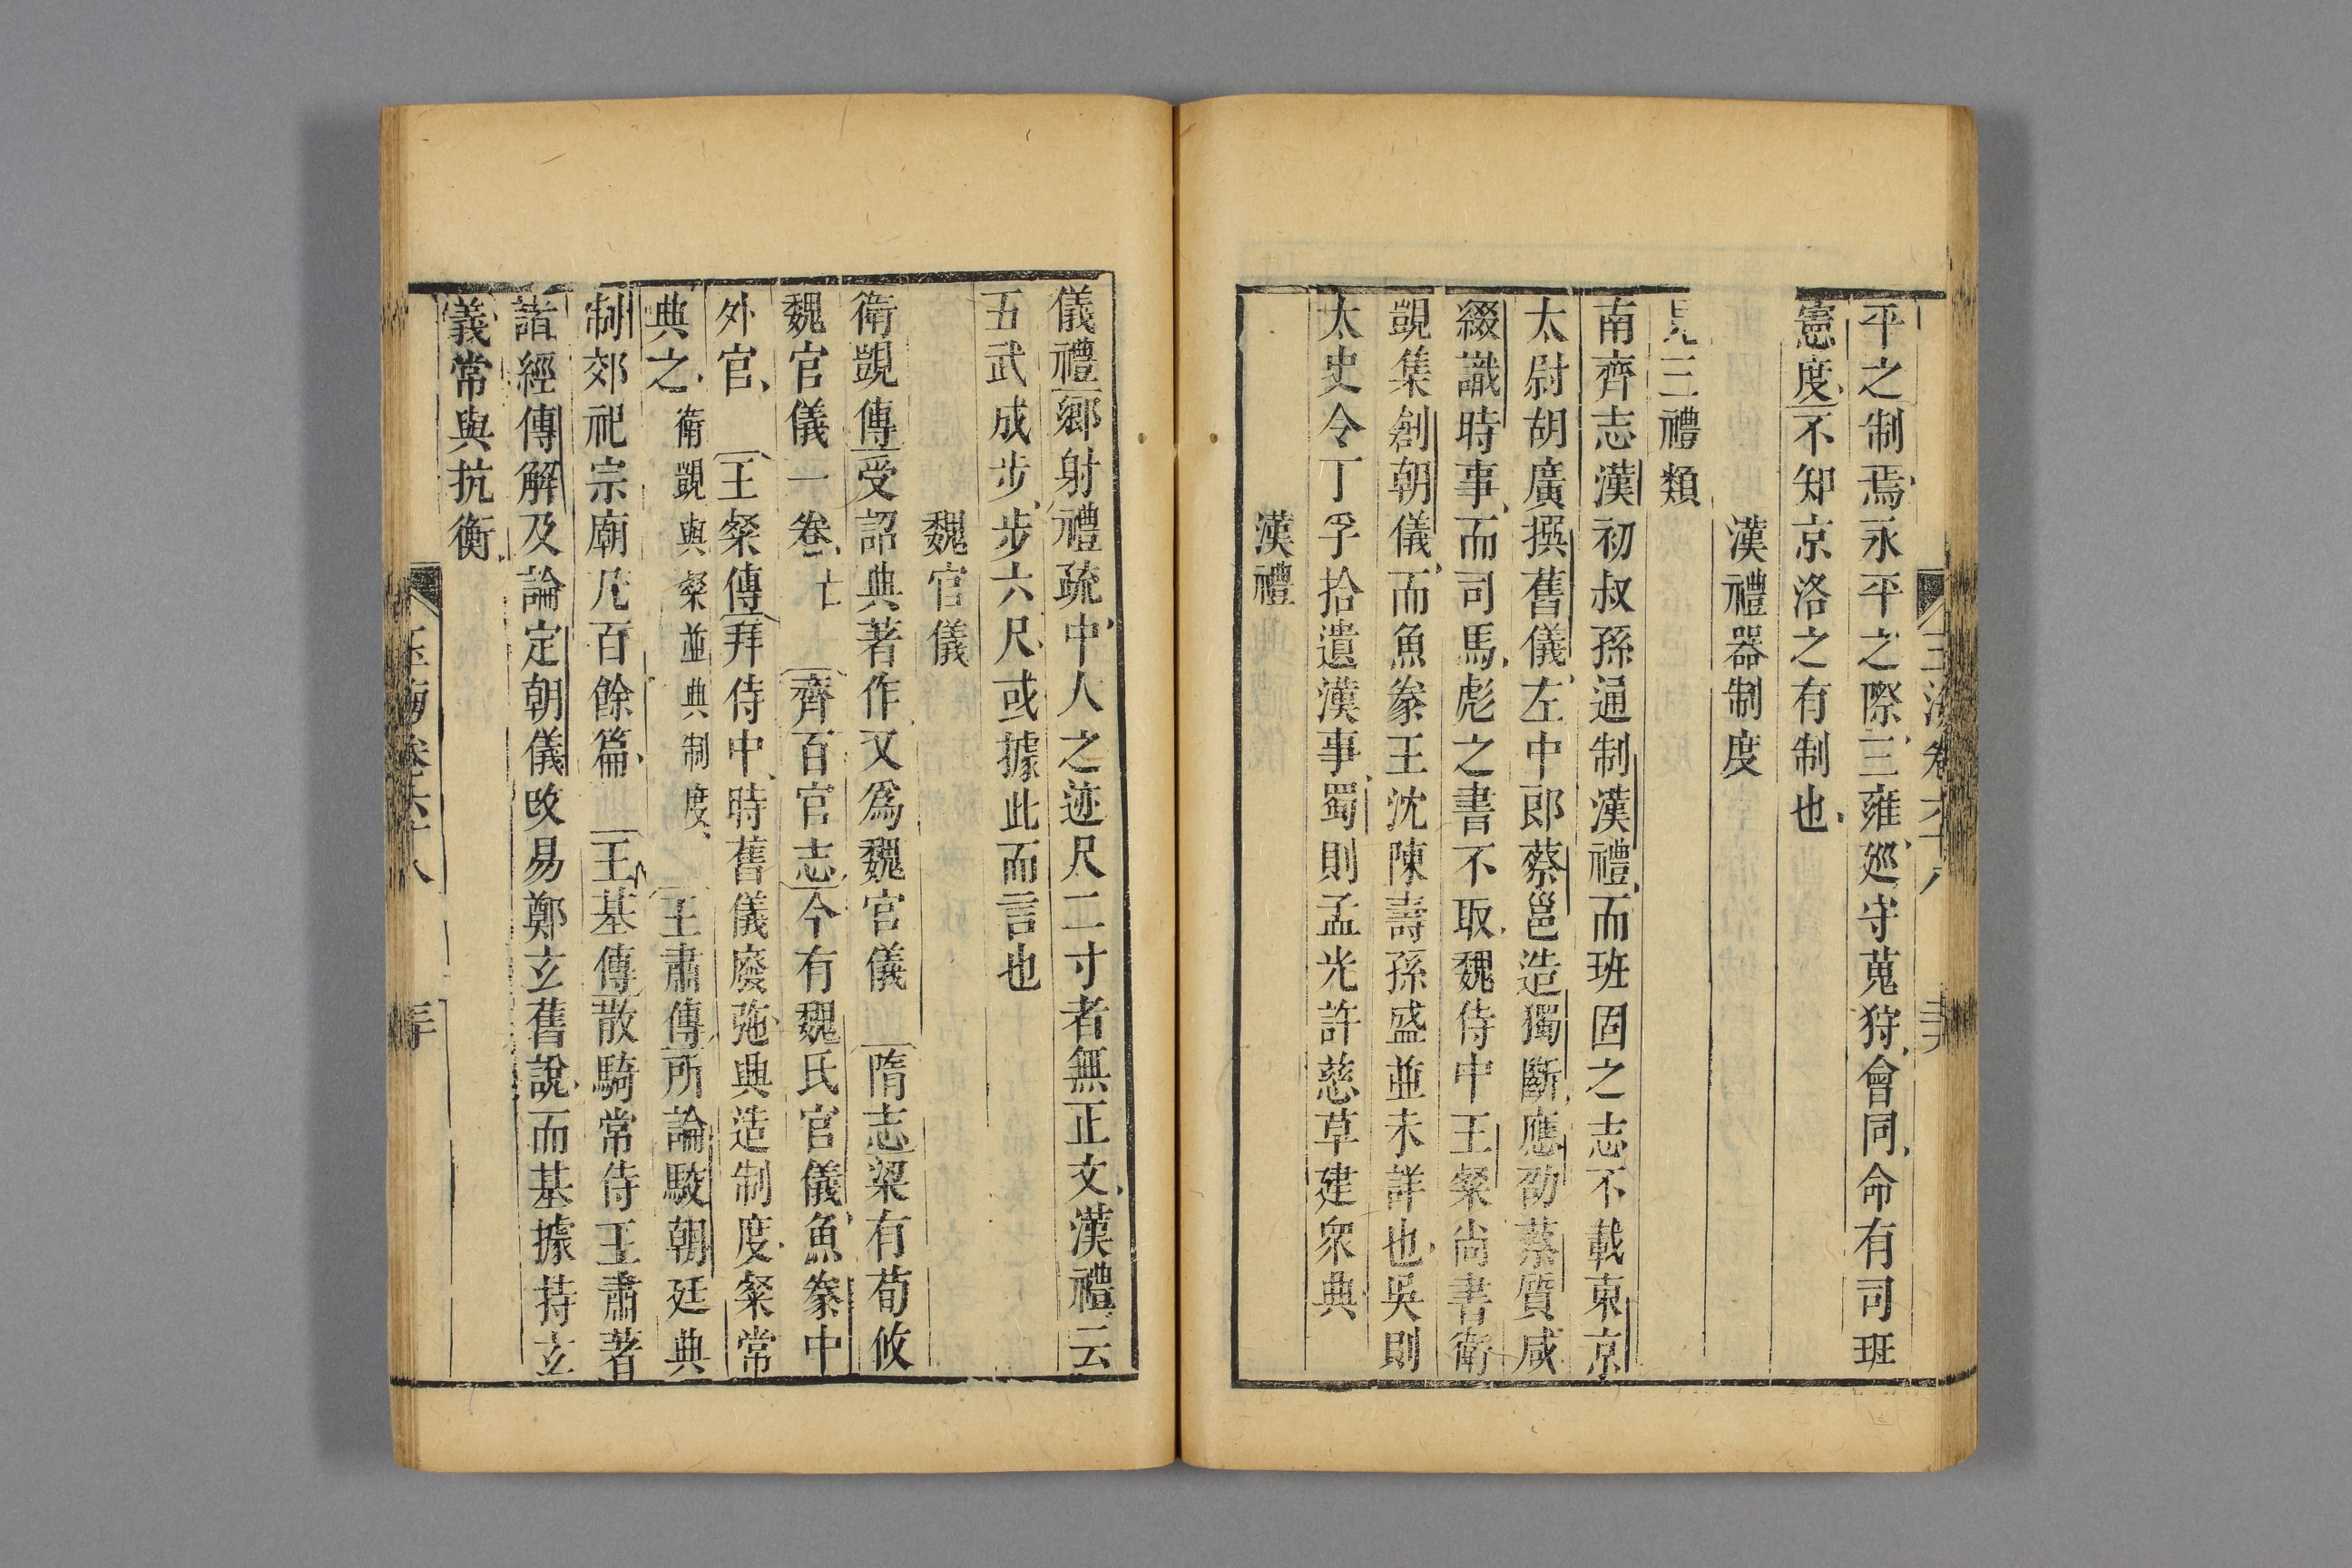 平之制焉永平之際三雍巡守蒐狩會同命有司班
憲度不知京洛之有制也
漢禮器制度
見三禮類
南齊志漢初叔孫通制漢禮而班固之志不載東京
太尉胡廣撰舊儀左中郎蔡邕造獨斷應劭蔡質咸
綴識時事而司馬彪之書不取魏侍中王粲尚書衛
覬集創朝儀而魚豢王沈陳壽孫盛並未詳也吳則
太史令丁孚拾遺漢事蜀則孟光許慈草建眾典
漢禮
儀禮鄉射禮疏中人之迹尺二寸者無正文漢禮云
五武成步步六尺或據此而言也
魏官儀
衛覬傳受詔典著作又為魏官儀 隋志梁有荀攸
魏官儀一卷亡 齊百官志今有魏氏官儀魚豢中
外官 王粲傳拜侍中時舊儀廢弛興造制度粲常
典之衛覬與粲並典制度 王肅傳所論駮朝廷典
制郊祀宗廟凡百餘篇 王基傳散騎常侍王肅著
諸經傳解及論定朝儀改易鄭玄舊說而基據持玄
義常與抗衡